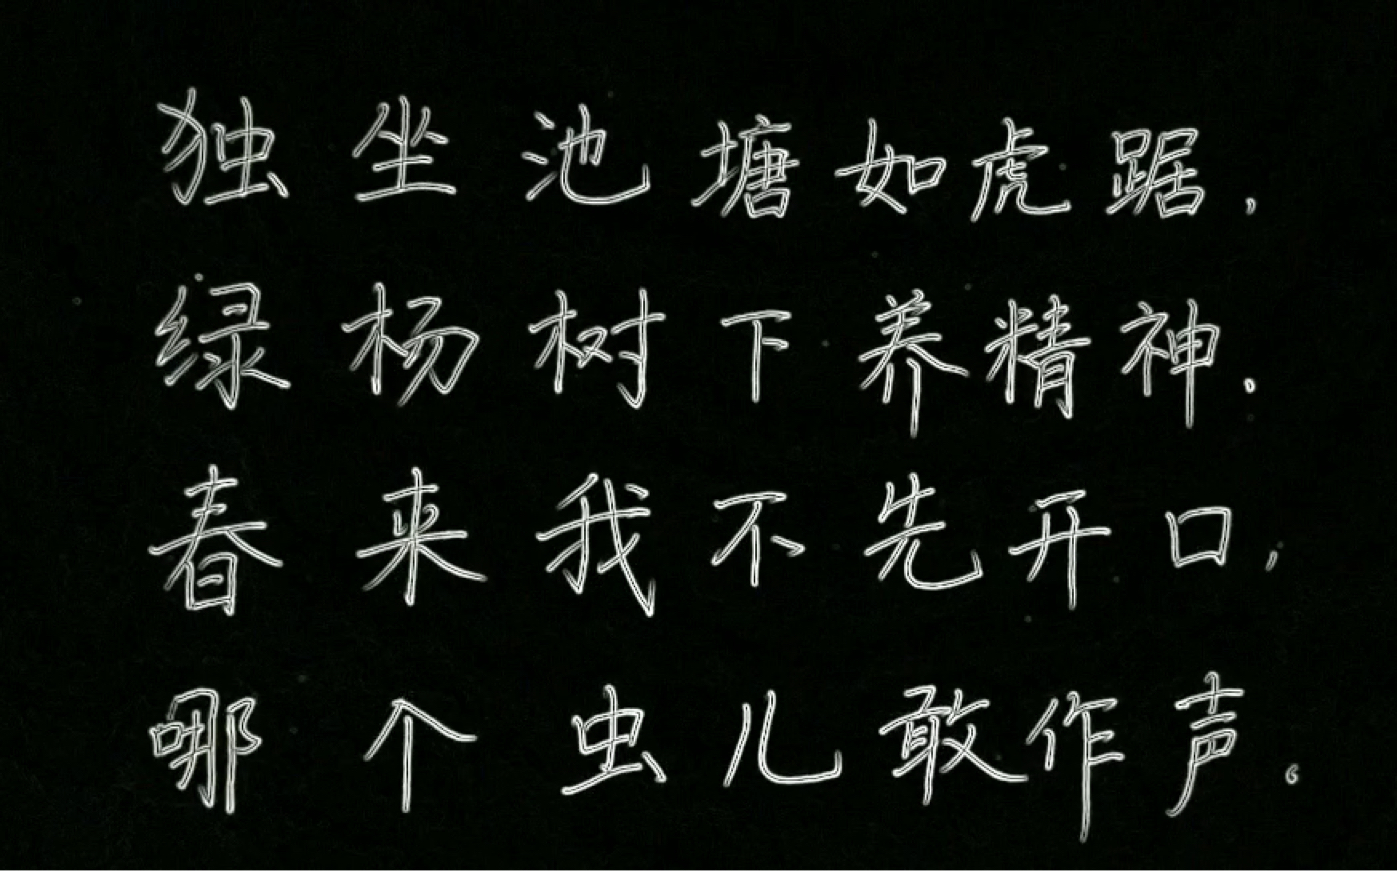 独坐池塘如虎踞，
绿杨树下养精神.
春来我不先开口，
哪个虫儿敢作声。